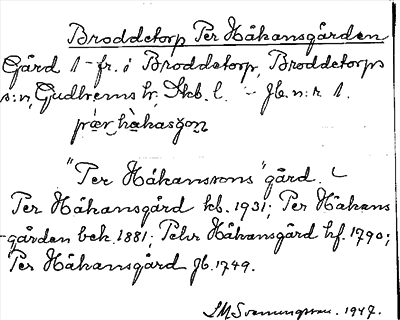 Broddetorp Per Håkansgården
Gård 1 fr. i Broddetorp, Broddetorps
s:n, Gudhems hr, Skb. l. - Jb. n:r 1.
pær hàkasgọn
"Per Håkanssons" gård.
Per Håkansgård kb. 1931; Per Håkans
-gården bek. 1881; Pehr Håkansgård hf. 1790;
Per Håkansgård Jb. 1749.
1947.